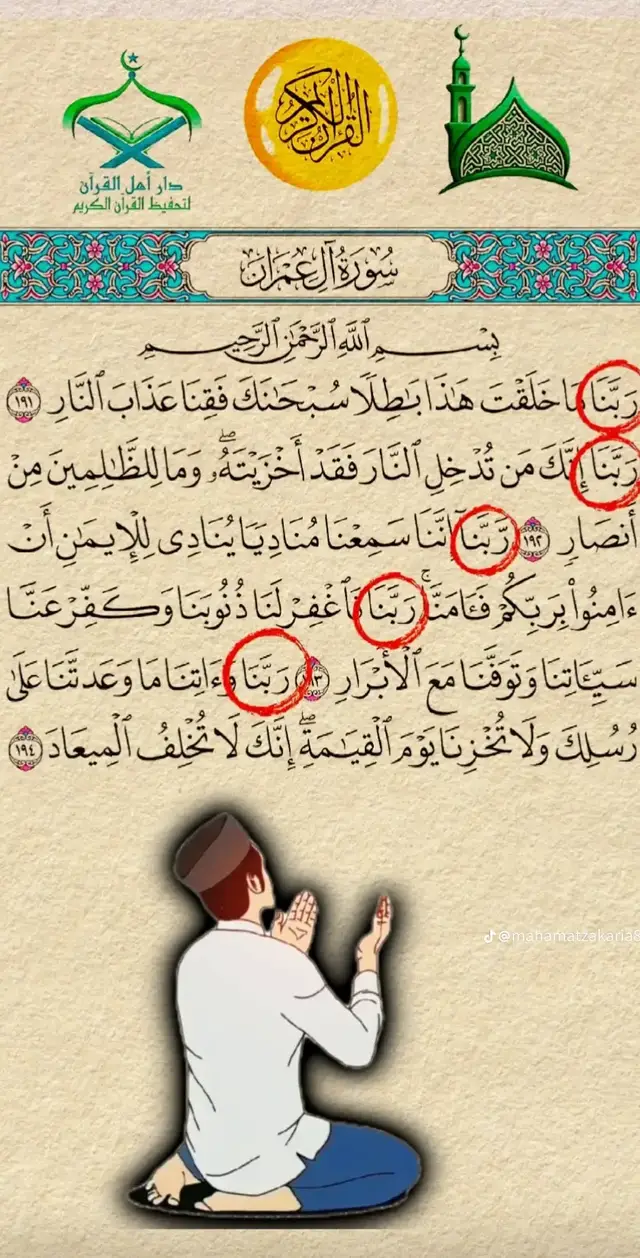 دار أهل القرآن
لتحفيظ القرآن الكريم
القرآن الكريم
سُورَةُ آلِ عِمْرَانَ
بِسْمِ ٱللَّهِ ٱلرَّحْمَٰنِ ٱلرَّحِيمِ
رَبَّنَا مَا خَلَقْتَ هَٰذَا بَٰطِلًا سُبْحَٰنَكَ فَقِنَا عَذَابَ ٱلنَّارِ ١٩١
رَبَّنَا إِنَّكَ مَن تُدْخِلِ ٱلنَّارَ فَقَدْ أَخْزَيْتَهُۥۖ وَمَا لِلظَّٰلِمِينَ مِنْ
أَنصَارٍ ١٩٢ رَّبَّنَآ إِنَّنَا سَمِعْنَا مُنَادِيًا يُنَادِى لِلْإِيمَٰنِ أَنْ
ءَامِنُوا۟ بِرَبِّكُمْ فَـَٔامَنَّاۚ رَبَّنَا فَٱغْفِرْ لَنَا ذُنُوبَنَا وَكَفِّرْ عَنَّا
سَيِّـَٔاتِنَا وَتَوَفَّنَا مَعَ ٱلْأَبْرَارِ ١٩٣ رَبَّنَا وَءَاتِنَا مَا وَعَدتَّنَا عَلَىٰ
رُسُلِكَ وَلَا تُخْزِنَا يَوْمَ ٱلْقِيَٰمَةِۖ إِنَّكَ لَا تُخْلِفُ ٱلْمِيعَادَ ١٩٤